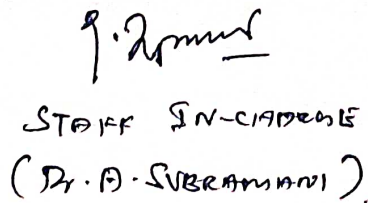 STAFF IN-CHARGE
(Dr. A. SUBRAMANI)